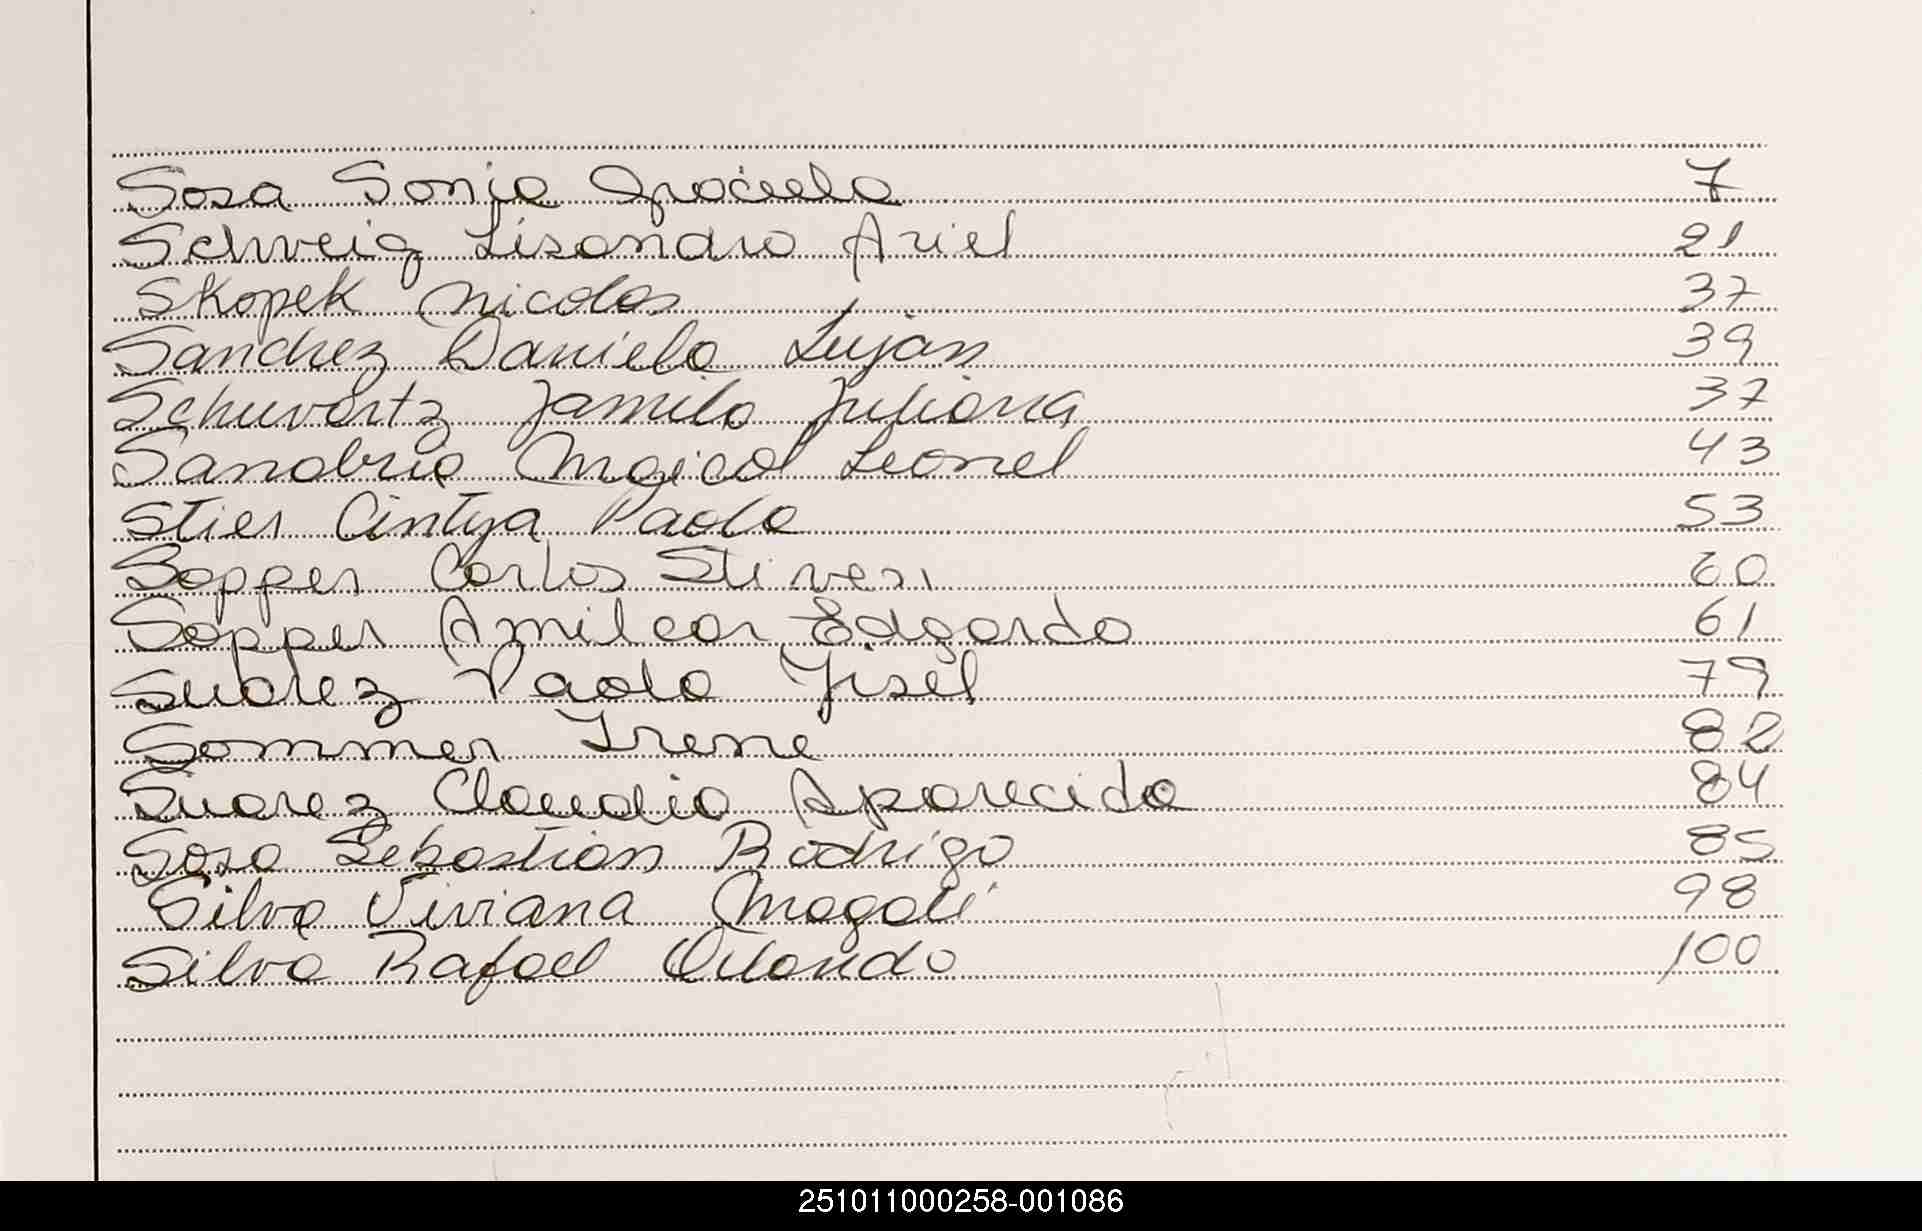 Sosa Sonia Graciela 7
Schveig Lisandro Ariel 21
Skopek Nicolas 37
Sanchez Daniela Luján 39
Schuvartz Jamila Juliana 37
Sanabria Maicol Leonel 43
Stier Cintya Paola 53
Sopper Carlos Stiven 60
Sopper Amilcar Edgardo 61
Suarez Paola Yisel 79
Sommer Irene 82
Suarez Claudia Aparecida 84
Sosa Sebastian Rodrigo 85
Silva Viviana Magali 98
Silva Rafael Orlando 100
251011000258-001086